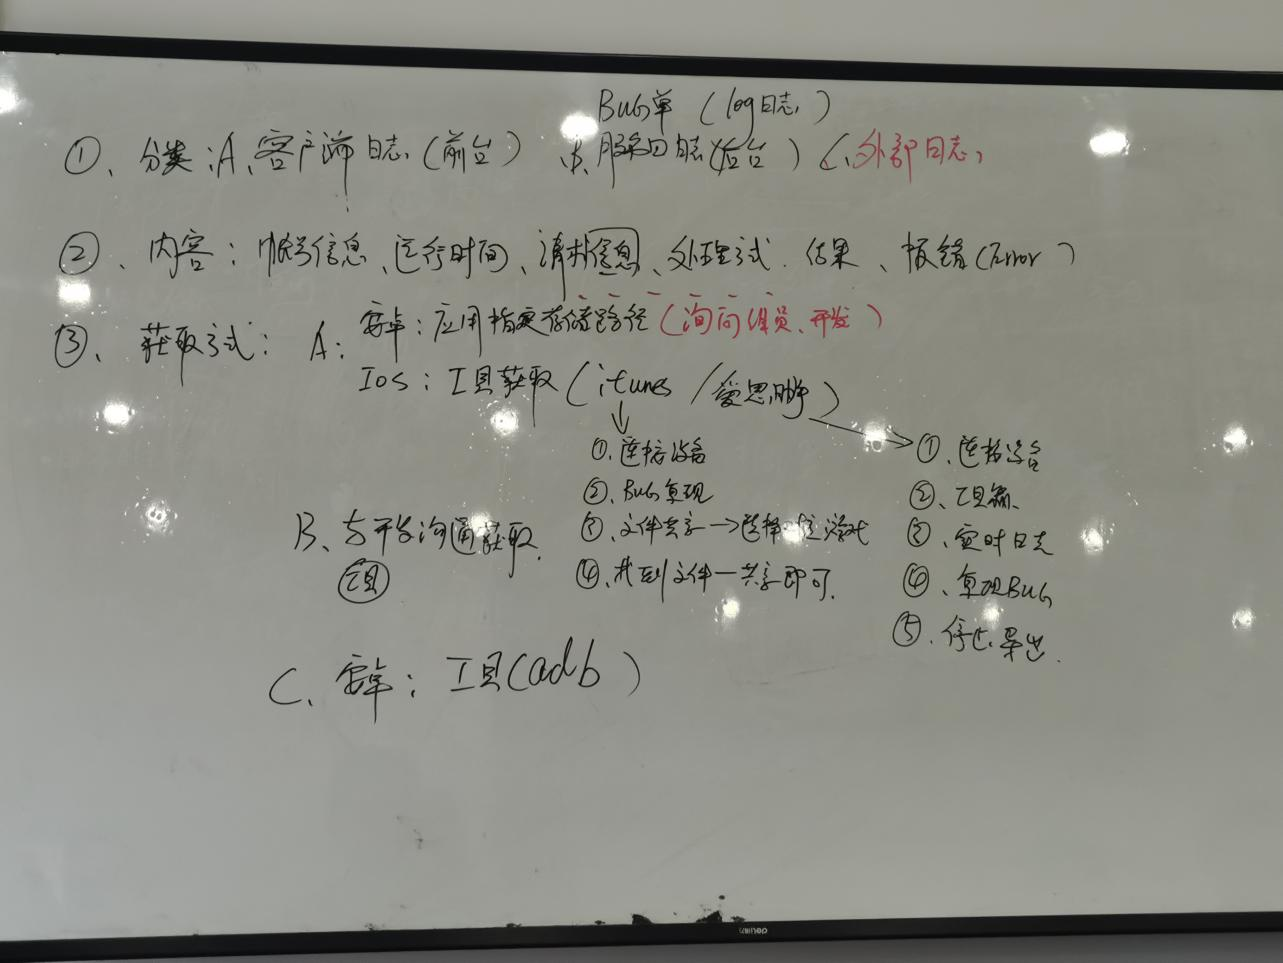 Bug单（log日志）
①、分类：A、客户端日志（前台） B、服务口日志（后台） C、外部日志
②、内容：帐号信息、运行时间、请求信息、处理方式、结果、报错（Error）
③、获取方式：A：安卓：应用指定存储路径（询问组员、开发）
IOS：工具获取（itunes／爱思助手）
①、连接设备
②、BUG复现
③、文件共享→选择 游戏
④、找到文件—共享即可.
①、连接设备
②、工具箱.
③、实时日志
④、复现BUG
⑤、停止、导出.
B、与开发沟通获取.
工具
C、安卓：工具（adb）
delimon